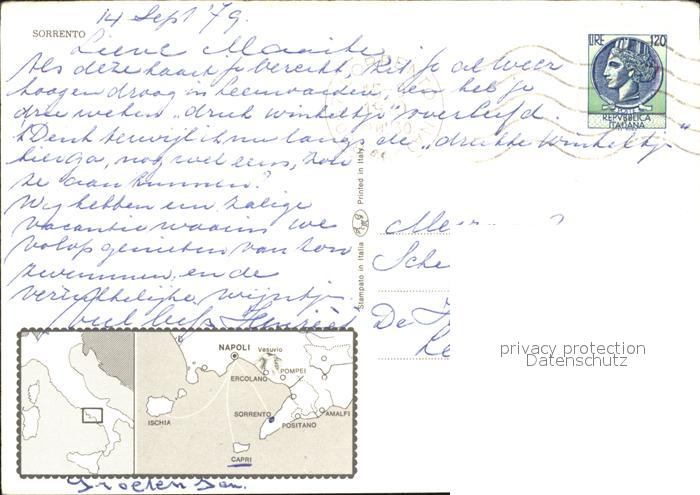 14 Sept '79.
SORRENTO
Lieve Maaike
Als deze kaart je bereikt, zit je al weer
hoog en droog in Leeuwarden, en heb je
drie weken "druk winkeltje" overleefd.
Denk terwijl ik nu langs de "drukke winkeltje"
hier ga, nog wel eens, zou
ze aan kunnen?
Wij hebben een zalige
vacantie waarin we
volop genieten van zon
zwemmen, en de
verrukkelijke wijntjes.
veel liefs
Groeten Jan.
LIRE 120
POSTE
REPVBBLICA
ITALIANA
Printed in Italy
Stampato in Italia
De
NAPOLI
Vesuvio
ERCOLANO
POMPEI
ISCHIA
SORRENTO
AMALFI
POSITANO
CAPRI
privacy protection
Datenschutz